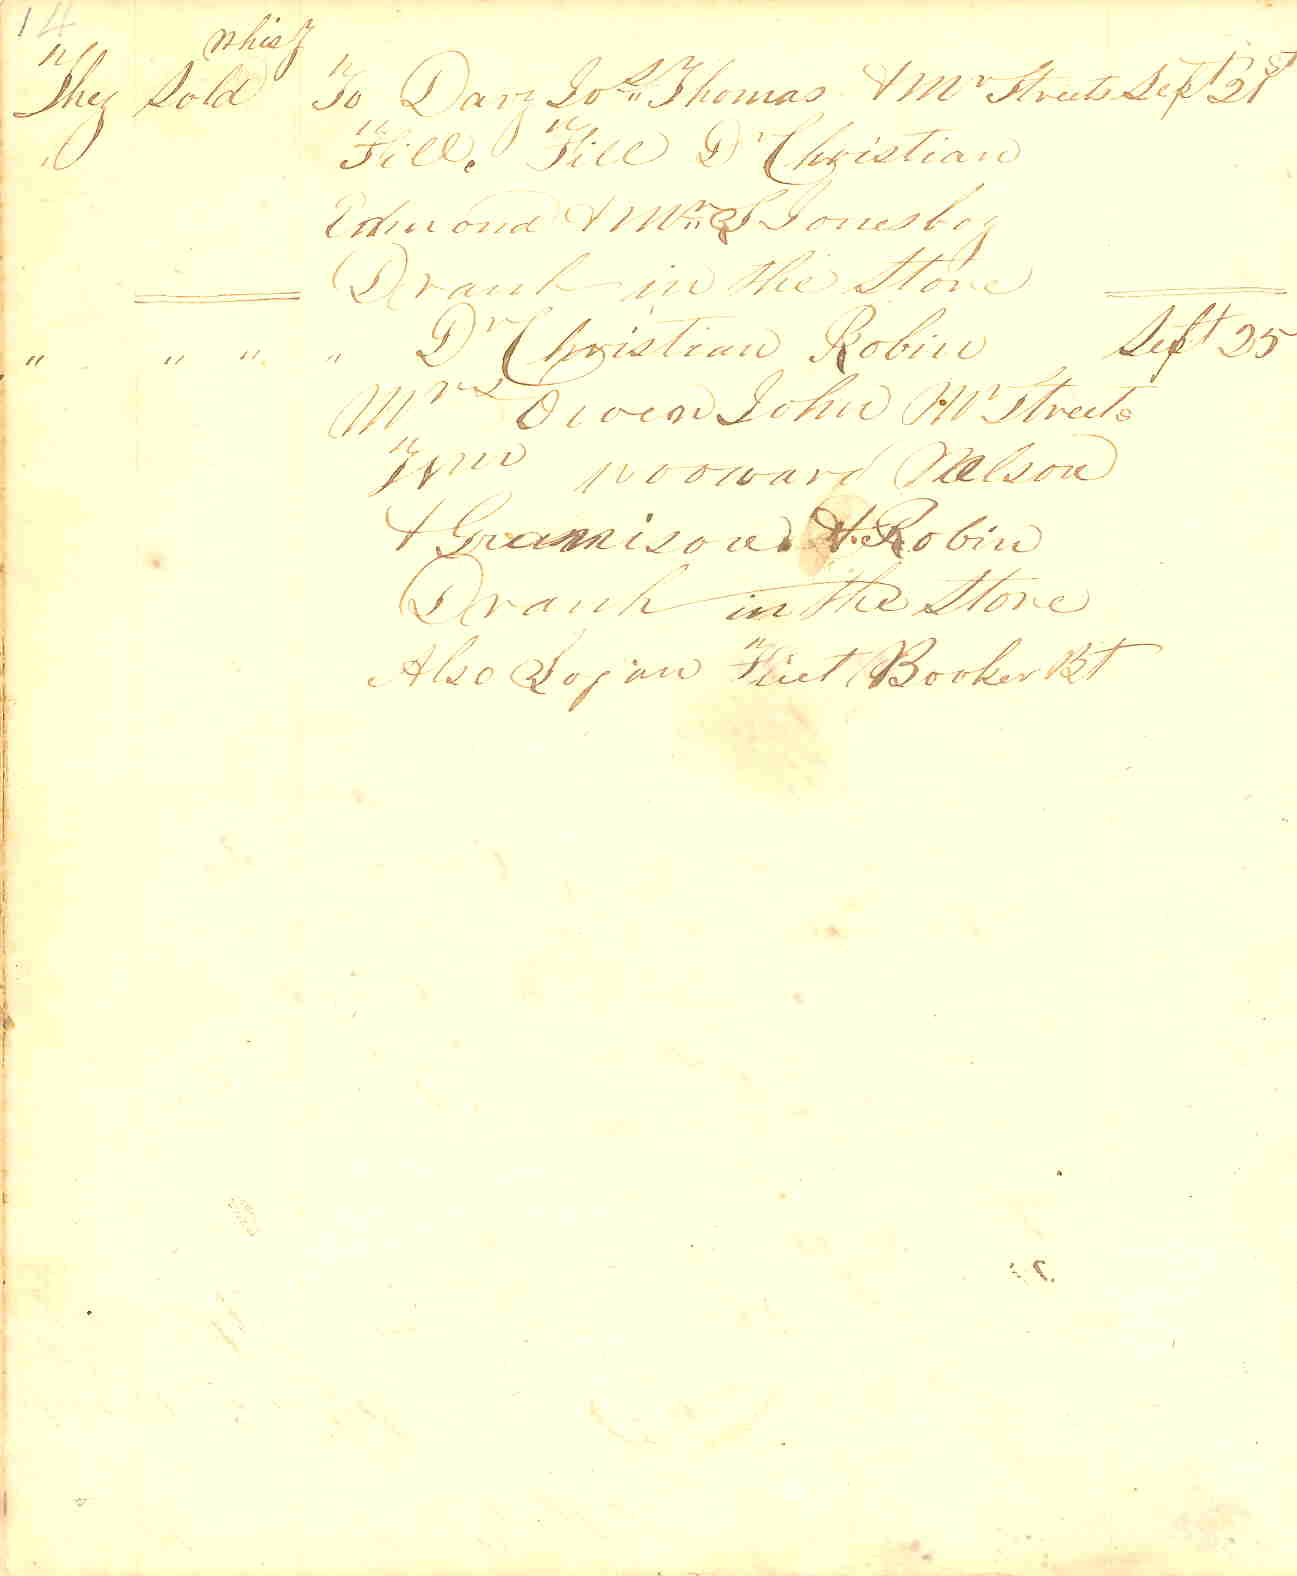 14
whisy
They Sold To Davy Jos. Thomas & Mr Streets Sept 21st
" Fill. Fill Dr Christian
Edmond & Mr. S Jonesboy
Drank in the Store
" " " " Dr Christian Robin Sept 25
Mrs Owen John Mr Streets
Wm wooward Nelson
& Grannison & Robin
Drank in the Store
Also Logan Booker Bt